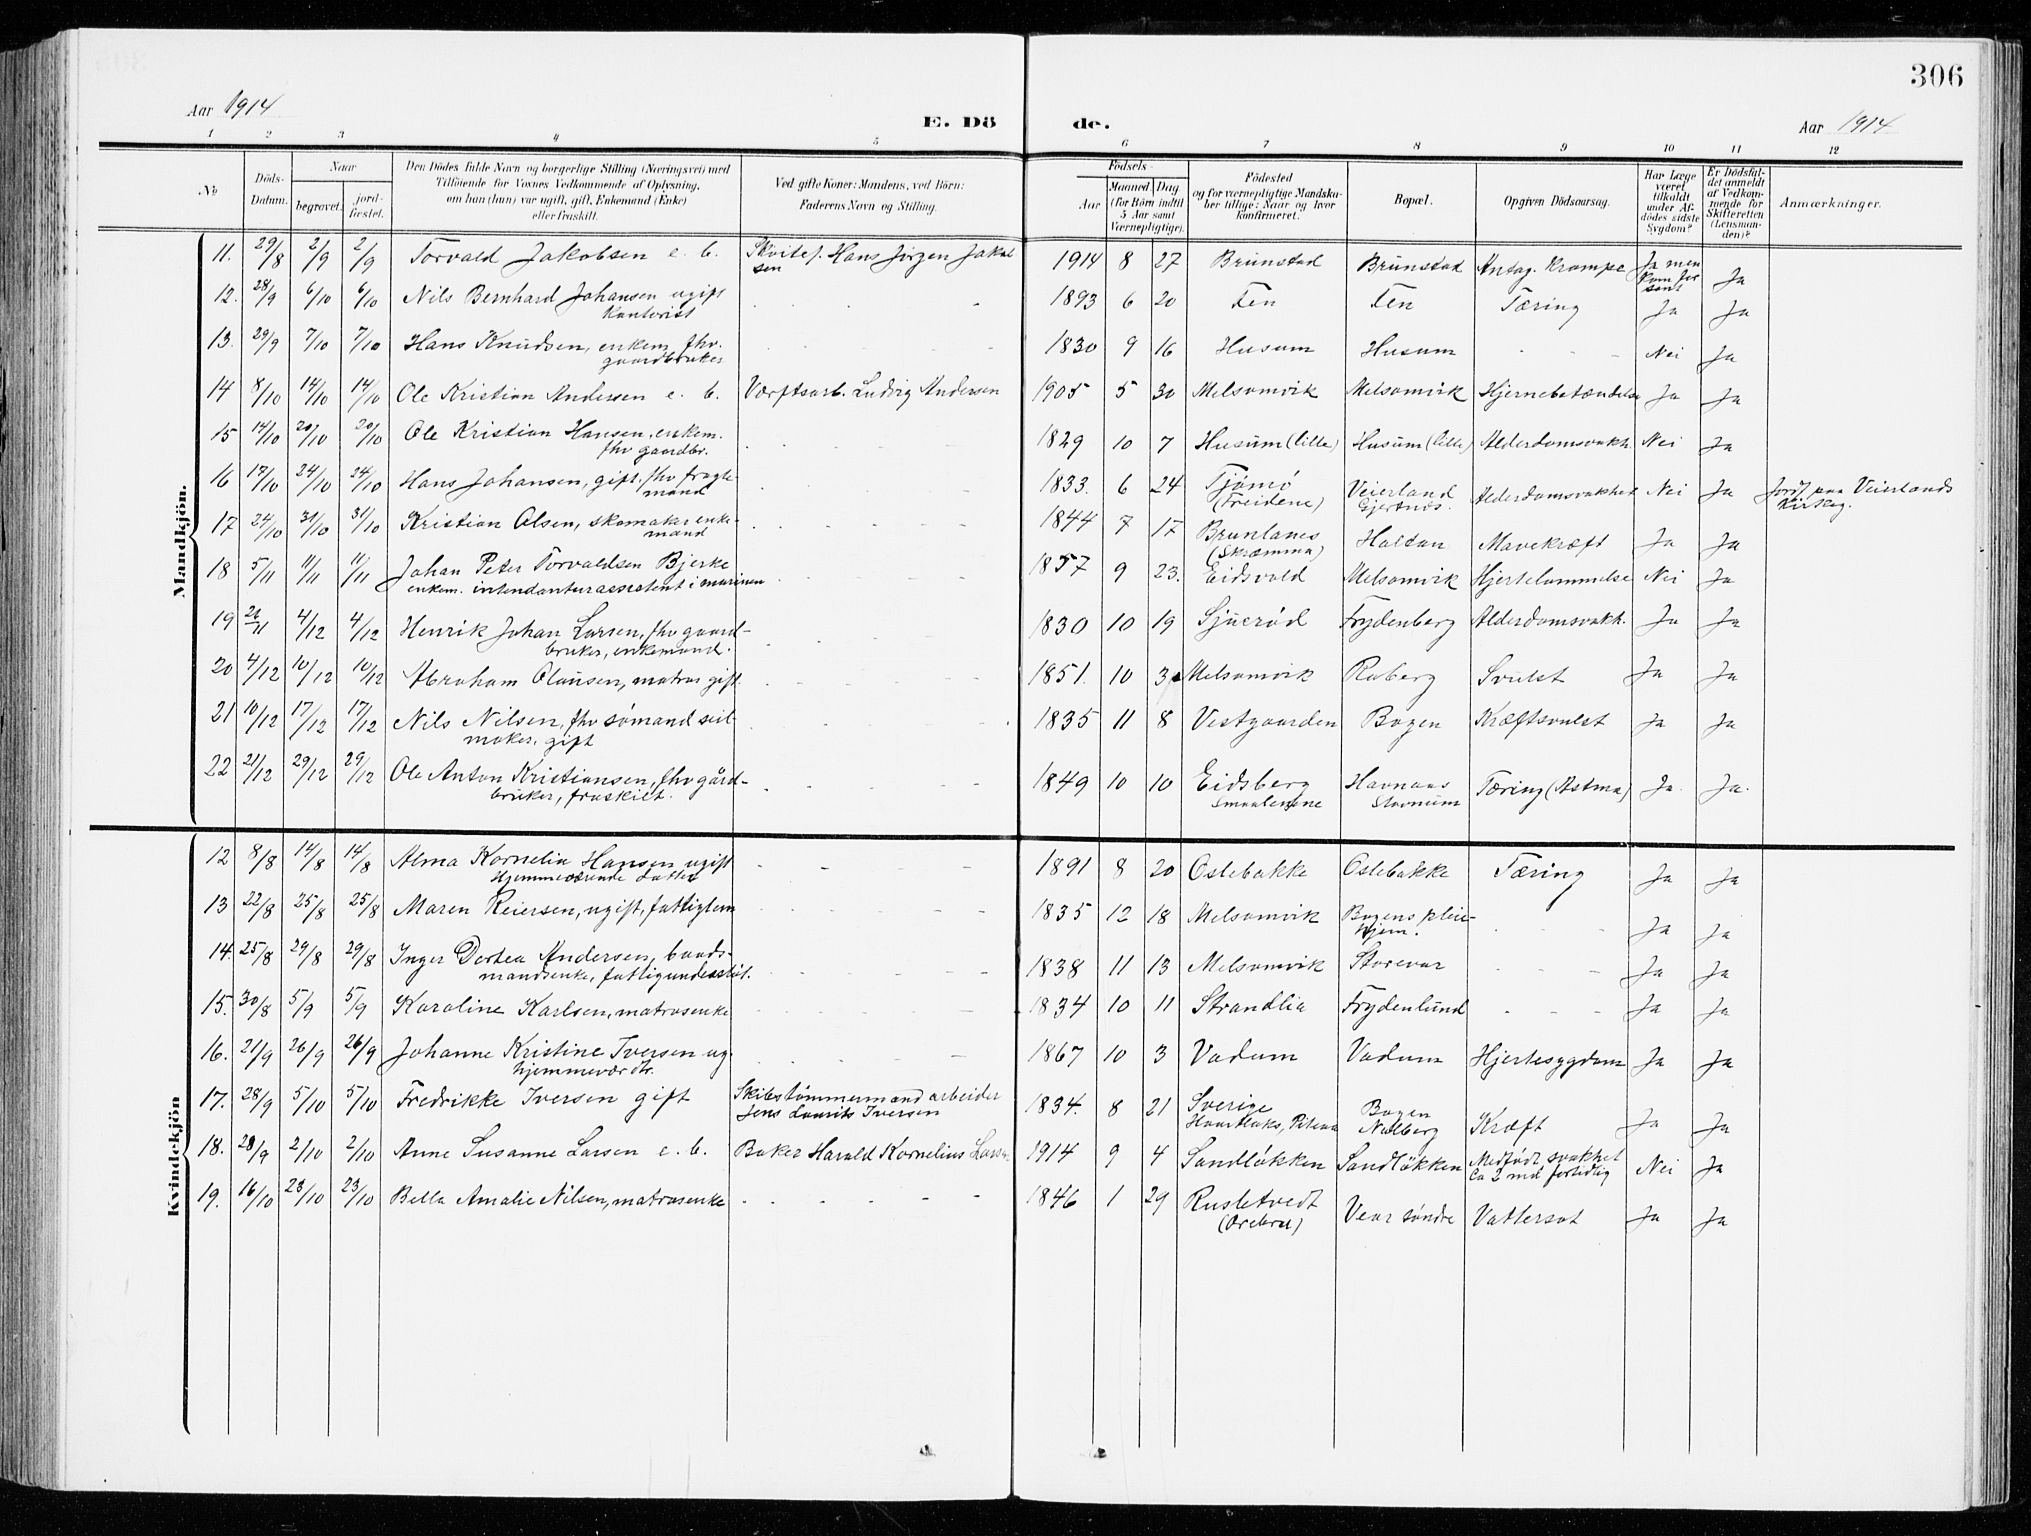 306
Aar 1914
E. Dö
de.
Aar 1914
1 2 3 4 5 6 7 8 9 10 11 12
No
Döds-Datum.
Naar
begravet.
jord-fæstet.
Den Dödes fulde Navn og borgerlige Stilling (Næringsvei) med
Tilföiende for Voxnes Vedkommende af Oplysning,
om han (hun) var ugift, gift, Enkemand (Enke)
eller fraskilt.
Ved gifte Koner: Mandens, ved Börn:
Faderens Navn og Stilling.
Födsels-
Aar
Maaned. Dag
(for Börn indtil
5 Aar samt
Værnepligtige).
Födested
og for værnepligtige Mandska-
ber tillige: Naar og hvor
konfirmeret.
Bopæl.
Opgiven Dödsaarsag.
Har Læge
været
tilkaldt
under Af-
dödes sidste
Sygdom?
Er Dödsfal-
det anmeldt
af Vedkom-
mende for
Skifteretten
(Lensman-
den)?
Anmærkninger.
Mandkjön.
11. 29/8 2/9 2/9 Torvald Jakobsen e. b. Hans Jörgen Jakob
sen 1914 8 27 Brunstad Brunstad Antag. Krampe Ja men
kom for
sent Ja
12. 28/9 6/10 6/10 Nils Bernhard Johansen ugift
Kontorist 1893 6 20 Fen Fen Tæring Ja Ja
13. 29/9 7/10 7/10 Hans Knudsen, enkem. fhv.
gaardbruker 1830 9 16 Husum Husum - - - Nei Ja
14 8/10 14/10 14/10 Ole Kristian Andersen e. b. Værftsarb. Ludvig Andersen 1905 5 30 Melsomvik Melsomvik Hjernebetændelse Ja Ja
15 14/10 20/10 20/10 Ole Kristian Hansen, enkem.
fhv gaardbr. 1829 10 7 Husum (lille) Husum (lille) Alderdomsvakh. Nei Ja
16 17/10 24/10 24/10 Hans Johansen, gift. fhv fragte-
mand 1833. 6 24 Tjömö
Veierland
Alderdomsvakhet Nei Ja Jordf. paa Veierlands
Kirkeg.
17 24/10 31/10 31/10 Kristian Olsen, skomaker enke-
mand 1844 7 17 Brunlanes
Haldan Mavekræft Ja Ja
18 5/11 11/11 11/11 Johan Peter Torvaldsen Bjerke
enkem. intendanturassistent i marinen 1857 9 23. Eidsvold Melsomvik Hjertelammelse Nei Ja
19 4/12 4/12 Henrik Johan Larsen, fhv gaard-
bruker, enkemand. 1830 10 19 Sjuerød Frydenberg Alderdomsvakh. Ja Ja
20 4/12 10/12 10/12 Abraham Olausen, matros gift 1851. 10 Melsomvik Raberg Svulst Ja Ja
21 10/12 17/12 17/12 Nils Nilsen, fhv sømand seil-
maker, gift 1835 11 8 Vestgaarden Bogen Kræftsvulst Ja Ja
22 21/12 29/12 29/12 Ole Anton Kristiansen, fhv gård-
bruker, fraskilt. 1849 10 10 Eidsberg
Smaalenene Havnaas
Stavnum Tæring (Astma) Ja. Ja.
Kvindekjön
12 8/8 14/8 14/8 Alma Kornelia Hansen ugift
Hjemmeværende datter 1891 8 20 Oslebakke Oslebakke Tæring Ja Ja
13 22/8 25/8 25/8 Maren Reiersen, ugift, fattiglem 1835 12 18 Melsomvik Bogens pleie-
hjem. Ja Ja
14. 25/8 29/8 29/8 Inger Dortea Andersen, baads-
mandsenke, fattigunderstöt. 1838 11 13 Melsomvik Storevar - - - Ja Ja
15. 30/8 5/9 5/9 Karoline Karlsen, matrosenke 1834 10 11 Strandlia Frydenlund - - - Ja Ja
16. 21/9 26/9 26/9 Johanne Kristine Iversen ug.
hjemmevær dtr. 1867 10 3 Vadum Vadum Hjertesygdom Ja Ja
17. 28/9 5/10 5/10 Fredrikke Iversen gift Skibstömmermand arbeider
Jens Laurits Iversen 1834. 8 21 Sverige
Bogen
Kræft Ja Ja
18. 28/9 2/10 2/10 Anne Susanne Larsen e. b. Baker Harald Kornelius Larsen 1914 9 4 Sandløkken Sandløkken Medfødt svakhet
Ca 2 md fortidlig Nei Ja
19. 16/10 23/10 23/10 Bella Amalie Nilsen, matrosenke 1846 1 29 Rusletvedt
Vear søndre Vattersot Ja Ja